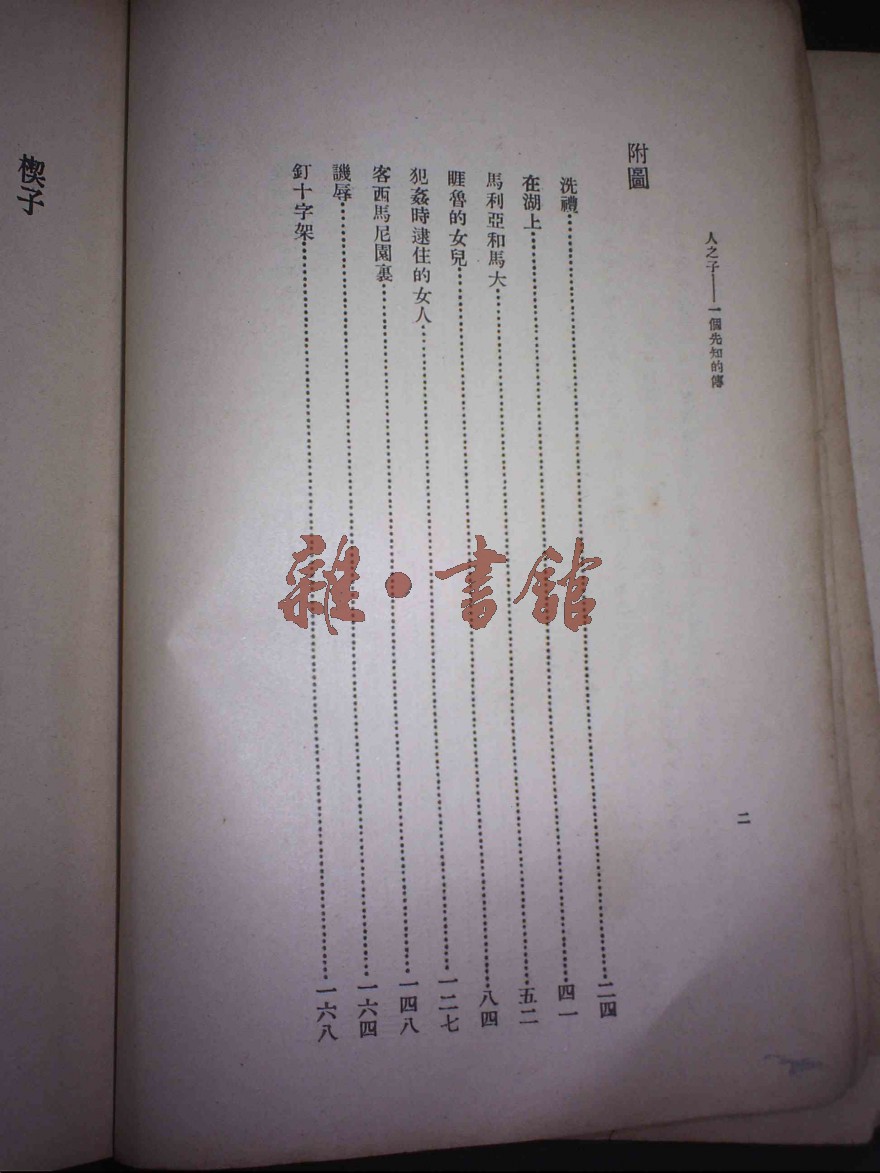 人之子——一個先知的傳
二
附圖
洗禮……二四
在湖上……四一
馬利亞和馬大……五二
睚魯的女兒……八四
犯姦時逮住的女人……一二七
客西馬尼園裏……一四八
譏辱……一六四
釘十字架……一六八
楔子
雜·書館